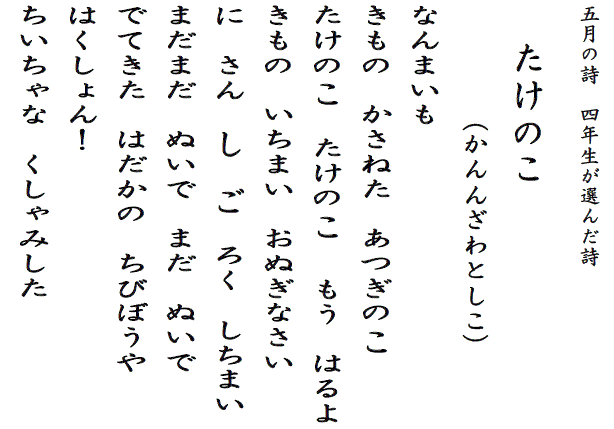 五月の詩　四年生が選んだ詩
たけのこ
（かんんざわとしこ）
なんまいも
きもの　かさねた　あつぎのこ
たけのこ　たけのこ　もう　はるよ
きもの　いちまい　おぬぎなさい
に　さん　し　ご　ろく　しちまい
まだまだ　ぬいで　まだ　ぬいで
でてきた　はだかの　ちびぼうや
はくしょん！
ちいちゃな　くしゃみした